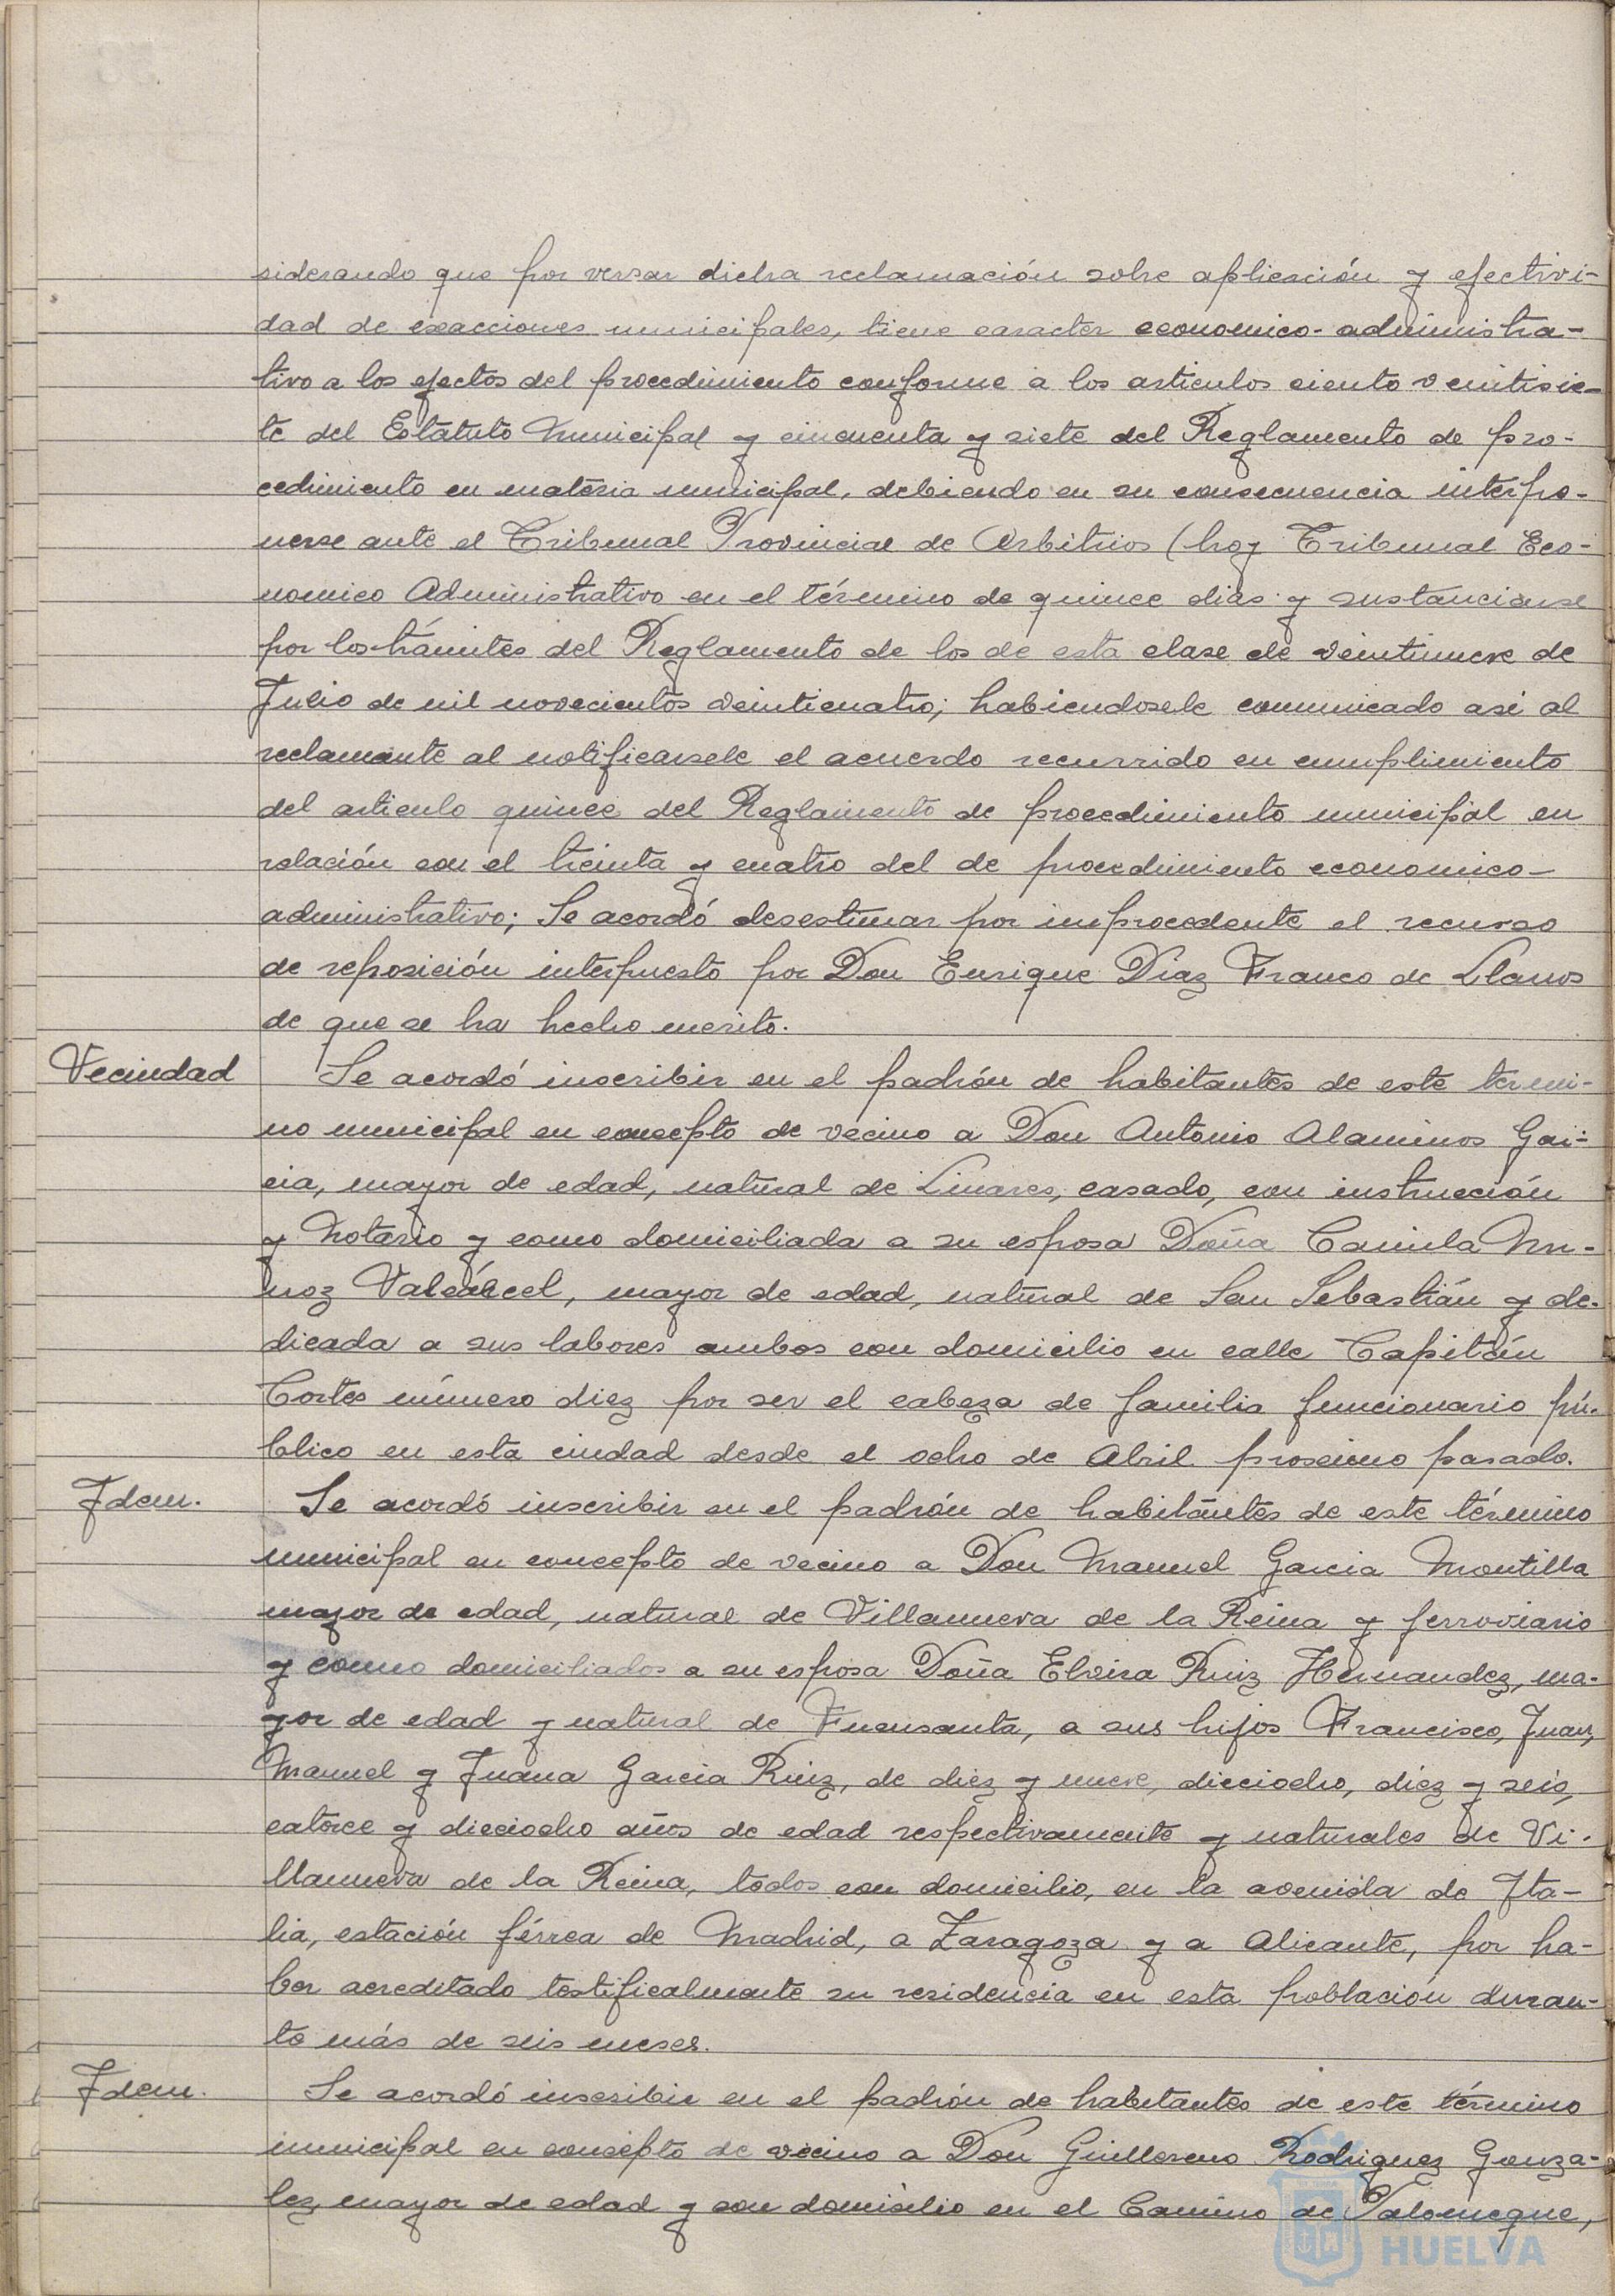 siderando que por versar dicha reclamación sobre aplicación y efectivi-
dad de exacciones municipales, tiene caracter economico-administra-
tivo a los efectos del procedimiento conforme a los articulos ciento veintisie-
te del Estatuto Municipal y cincuenta y siete del Reglamento de pro-
cedimiento en materia municipal, debiendo en su consecuencia interpo-
nerse ante el Tribunal Provincial de Arbitrios (hoy Tribunal Eco-
nomico Administrativo en el término de quince dias y sustanciarse
por los trámites del Reglamento de los de esta clase de veintinueve de
Julio de mil novecientos veinticuatro; habiendosele comunicado asi al
reclamante al notificarsele el acuerdo recurrido en cumplimiento
del articulo quince del Reglamento de procedimiento municipal en
relación con el treinta y cuatro del de procedimiento economico-
administrativo; Se acordó desestimar por improcedente el recurso
de reposición interpuesto por Don Enrique Diaz Franco de Llanos
de que se ha hecho merito.
Vecindad Se acordó inscribir en el padrón de habitantes de este termi-
no municipal en concepto de vecino a Don Antonio Alaminos Gar-
cia, mayor de edad, natural de Linares, casado, con instrucción
y Notario y como domiciliada a su esposa Doña Camila Mu-
ñoz Valcárcel, mayor de edad, natural de San Sebastián y de-
dicada a sus labores ambos con domicilio en calle Capitán
Cortes número diez por ser el cabeza de familia funcionario pú-
blico en esta ciudad desde el ocho de Abril proximo pasado.
Idem. Se acordó inscribir en el padrón de habitantes de este término
municipal en concepto de vecino a Don Manuel Garcia Montilla
mayor de edad, natural de Villanueva de la Reina y ferroviario
y como domiciliados a su esposa Doña Elvira Ruiz Hernandez, ma-
yor de edad y natural de Fuensanta, a sus hijos Francisco, Juan,
Manuel y Juana Garcia Ruiz, de diez y nueve, dieciocho, diez y seis,
catorce y dieciocho años de edad respectivamente y naturales de Vi-
llanueva de la Reina, todos con domicilio, en la avenida de Ita-
lia, estación férrea de Madrid, a Zaragoza y a Alicante, por ha-
ber acreditado testificalmente su residencia en esta población duran-
te más de seis meses.
Idem. Se acordó inscribir en el padrón de habitantes de este término
municipal en concepto de vecino a Don Guillermo Rodriguez Gonza-
lez mayor de edad y con domicilio en el Camino de Palomeque,
HUELVA